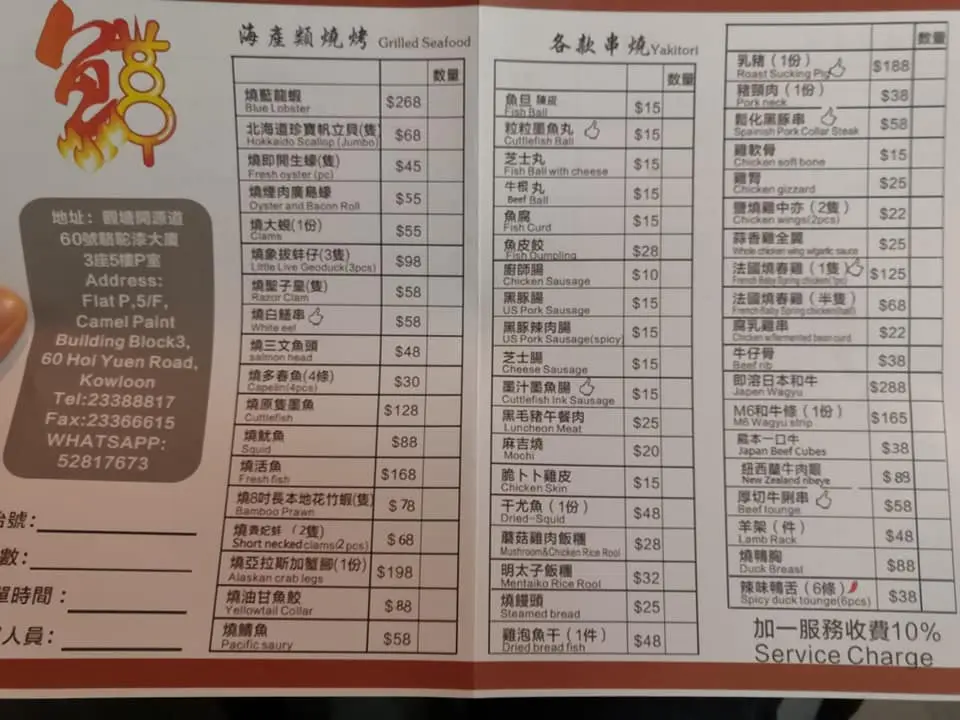 鱻
地址：觀塘開源道
60號駱駝漆大廈
3座5樓P室
Address:
Flat P,5/F,
Camel Paint
Building Block3,
60 Hoi Yuen Road,
Kowloon
Tel:23388817
Fax:23366615
WHATSAPP:
52817673
台號：
數：
單時間：
人員：
海產類燒烤 Grilled Seafood
數量
燒藍龍蝦 $268
Blue Lobster
北海道珍寶帆立貝(隻) $68
Hokkaido Scallop (Jumbo)
燒即開生蠔(隻) $45
Fresh oyster (pc)
燒煙肉廣島蠔 $55
Oyster and Bacon Roll
燒大蜆(1份) $55
Clams
燒象拔蚌仔(3隻) $98
Little Live Geoduck(3pcs)
燒聖子皇(隻) $58
Razor Clam
燒白鱔串 $58
White eel
燒三文魚頭 $48
salmon head
燒多春魚(4條) $30
Capelin(4pcs)
燒原隻墨魚 $128
Cuttlefish
燒魷魚 $88
Squid
燒活魚 $168
Fresh fish
燒8吋長本地花竹蝦(隻) $78
Bamboo Prawn
燒貴妃蚌（2隻） $68
Short necked clams(2pcs)
燒亞拉斯加蟹腳(1份) $198
Alaskan crab legs
燒油甘魚鮫 $88
Yellowtail Collar
燒鯖魚 $58
Pacific saury
各款串燒 Yakitori
數量
魚旦 陳皮 $15
Fish Ball
粒粒墨魚丸 $15
Cuttlefish Ball
芝士丸 $15
Fish Ball with cheese
牛根丸 $15
Beef Ball
魚腐 $15
Fish Curd
魚皮餃 $28
Fish Dumpling
廚師腸 $10
Chicken Sausage
黑豚腸 $15
US Pork Sausage
黑豚辣肉腸 $15
US Pork Sausage(spicy)
芝士腸 $15
Cheese Sausage
墨汁墨魚腸 $15
Cuttlefish Ink Sausage
黑毛豬午餐肉 $25
Luncheon Meat
麻吉燒 $20
Mochi
脆卜卜雞皮 $15
Chicken Skin
干尤魚（1份） $48
Dried-Squid
蘑菇雞肉飯糰 $28
Mushroom&Chicken Rice Rool
明太子飯糰 $32
Mentaiko Rice Rool
燒饅頭 $25
Steamed bread
雞泡魚干（1件） $48
Dried bread fish
數量
乳豬（1份） $188
Roast Sucking Pig
豬頸肉（1份） $38
Pork neck
鬆化黑豚串 $58
Spainish Pork Collar Steak
雞軟骨 $15
Chicken soft bone
雞腎 $25
Chicken gizzard
鹽燒雞中亦（2隻） $22
Chicken wings(2pcs)
蒜香雞全翼 $25
Whole chicken wing w/garlic sauce
法國燒春雞（1隻） $125
French Baby Spring chicken(1pc)
法國燒春雞（半隻） $68
French Baby Spring chicken(half)
腐乳雞串 $22
Chicken w/fermented bean curd
牛仔骨 $38
Beef rib
即溶日本和牛 $288
Japen Wagyu
M6和牛條（1份） $165
M6 Wagyu strip
熊本一口牛 $38
Japan Beef Cubes
紐西蘭牛肉眼 $88
New Zealand ribeye
厚切牛脷串 $58
Beef tounge
羊架（件） $48
Lamb Rack
燒鴨胸 $88
Duck Breast
辣味鴨舌（6條） $38
Spicy duck tounge(6pcs)
加一服務收費10%
Service Charge